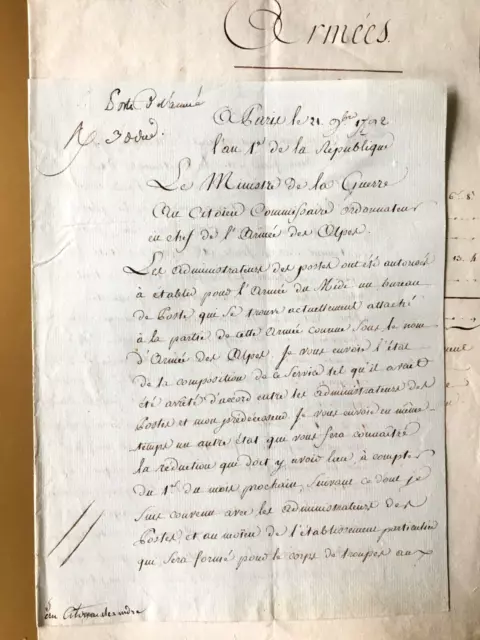 Armées.
Poste d'armée
A Paris le 21 9bre 1792
l'an 1er de la République
Le Ministre de la Guerre
Au Citoïen Commissaire ordonnateur
en chef de l'Armée des Alpes.
Les administrateurs des postes ont été autorisés
à établir pour l'Armée du Midi un bureau
de Poste qui se trouve actuellement attaché
à la partie de cette Armée connue sous le nom
d'Armée des Alpes. Je vous envoie l'état
de la composition de ce Service tel qu'il avait
été arrêté d'accord entre les administrateurs des
Postes et mon prédécesseur. Je vous envoie en même
temps un autre état qui vous fera connaître
la réduction qui doit y avoir lieu à compter
du 1er du mois prochain, suivant ce dont je
suis convenu avec les administrateurs des
Postes et au moïen de l'établissement particulier
qui sera formé pour le corps de troupes aux